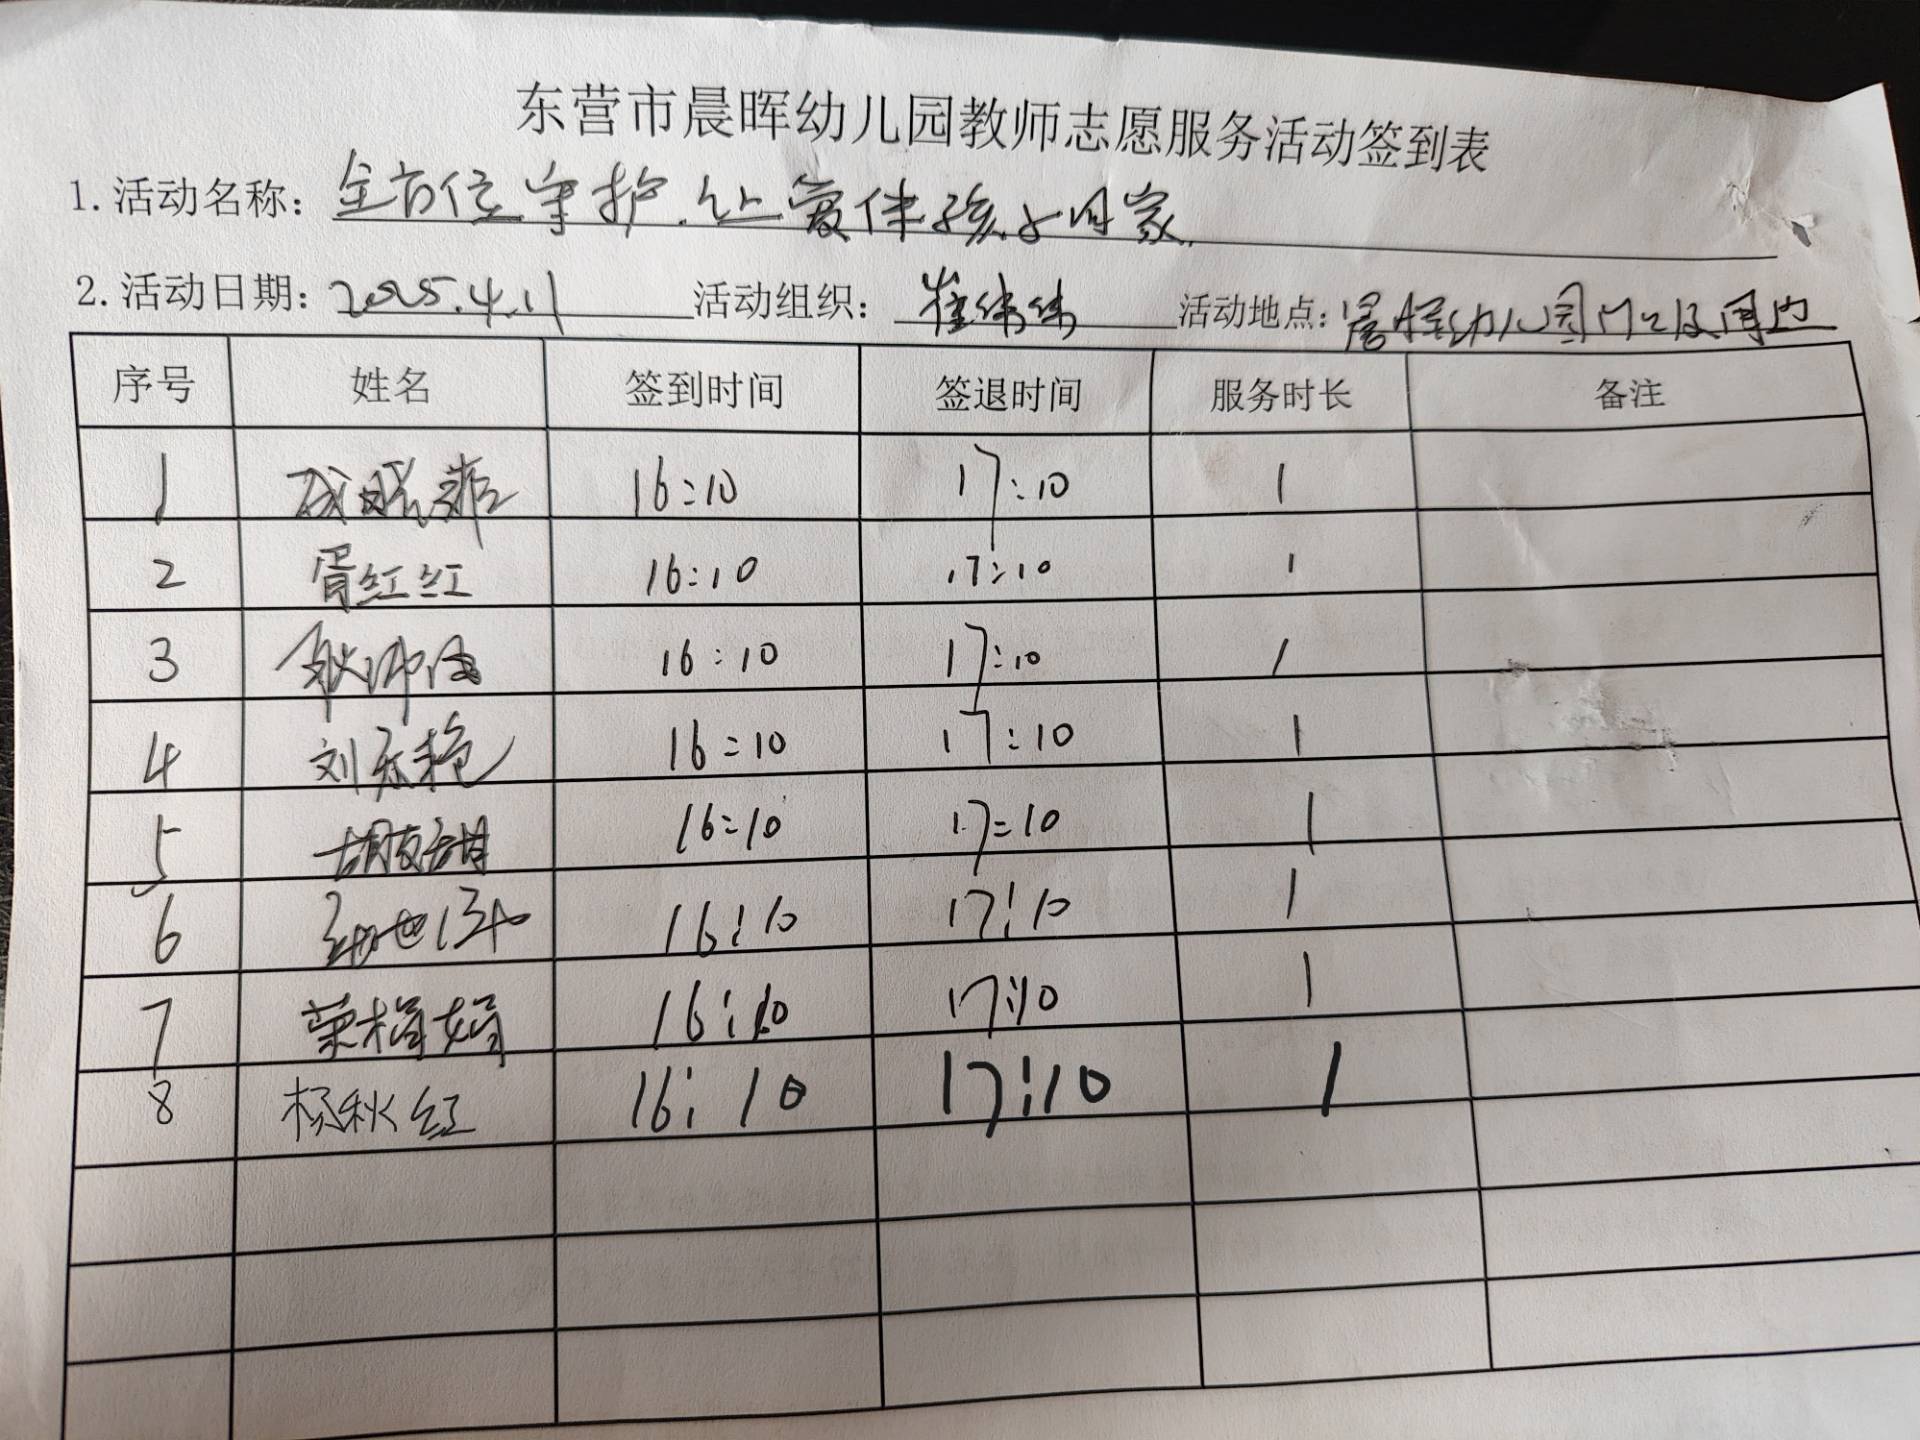 东营市晨晖幼儿园教师志愿服务活动签到表
1.活动名称：全方位守护，让爱伴孩子回家
2.活动日期：2025.4.11 活动组织：崔伟伟 活动地点：晨晖幼儿园门口及周边
序号 姓名 签到时间 签退时间 服务时长 备注
1 16:10 17:10 1
2 胥红红 16:10 17:10 1
3 16:10 17:10 1
4 刘东艳 16:10 17:10 1
5 胡甜甜 16:10 17:10 1
6 16:10 17:10 1
7 荣梅娟 16:10 17:10 1
8 杨秋红 16:10 17:10 1